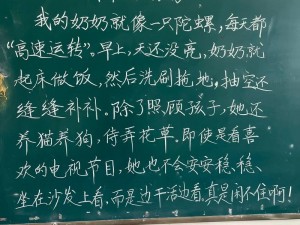 我的奶奶就像一只陀螺，每天都
“高速运转”。早上，天还没亮，奶奶就
起床做饭，然后洗刷拖地，抽空还
缝缝补补。除了照顾孩子，她还
养猫养狗，侍弄花草。即使是看喜
欢的电视节目，她也不会安安稳稳、
坐在沙发上看，而是边干活边看，真是闲不住啊！